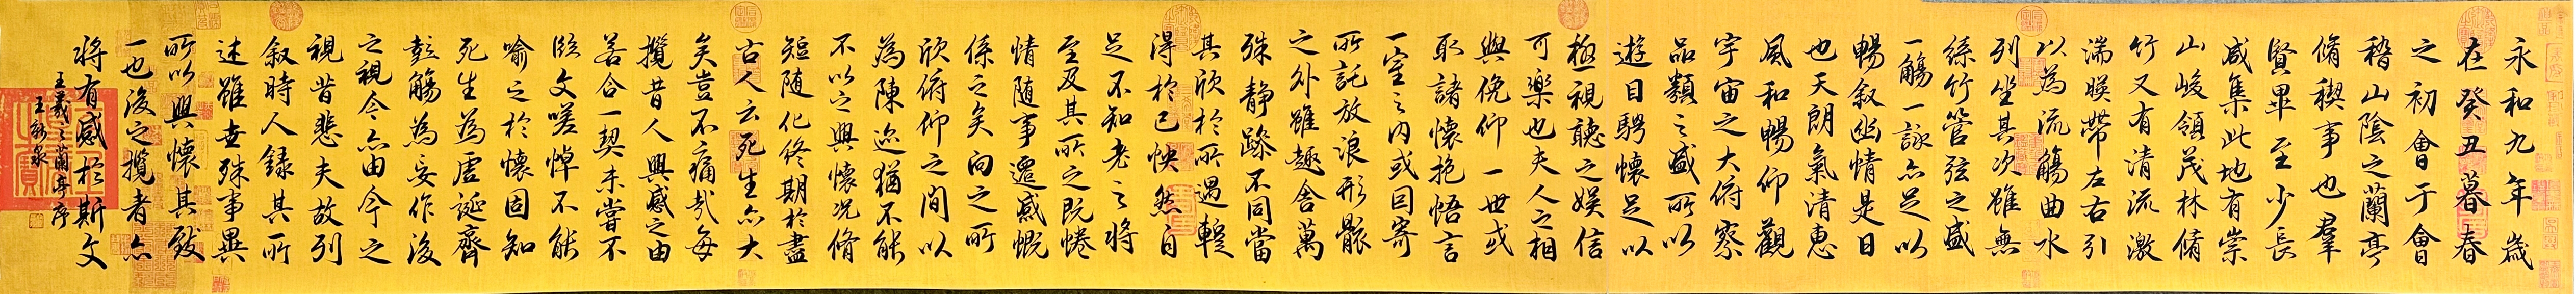 永和九年歲
在癸丑暮春
之初會于會
稽山陰之蘭亭
脩禊事也羣
賢畢至少長
咸集此地有崇
山峻領茂林脩
竹又有清流激
湍暎帶左右引
以為流觴曲水
列坐其次雖無
絲竹管弦之盛
一觴一詠亦足以
暢叙幽情是日
也天朗氣清惠
風和暢仰觀
宇宙之大俯察
品類之盛所以
遊目騁懷足以
極視聽之娛信
可樂也夫人之相
與俛仰一世或
取諸懷抱悟言
一室之内或因寄
所託放浪形骸
之外雖趣舍萬
殊静躁不同當
其欣於所遇蹔
得於己怏然自
足不知老之將
至及其所之既惓
情随事遷感慨
係之矣向之所
欣俯仰之間以
為陳迹猶不能
不以之興懷况脩
短随化終期於盡
古人云死生亦大
矣豈不痛哉每
攬昔人興感之由
若合一契未嘗不
臨文嗟悼不能
喻之於懷固知
死生為虛誕齊
彭觴為妄作後
之視今亦由今之
視昔悲夫故列
叙時人錄其所
述雖世殊事異
所以興懷其致
一也後之攬者亦
將有感於斯文
王羲之蘭亭序